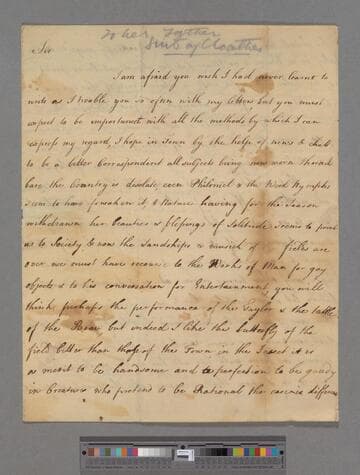 To her Father
Suit of Cloathes
Sir
I am afraid you wish I had never learnt to
write as I trouble you so often with my letters but you must
expect to be importunate with all the methods by which I can
express my regard, I hope in Town by the help of news &
to be a better Correspondent all subjects being now worn thread
bare the Country is desolate, even Philomel & the Wood Nymphs
seem to have forsaken it, & Nature having for the Season
withdrawn her Beauties & blessings of Solitude seems to send
us to Society & now the Landskips & musick of fields are
over we must have recourse to the Works of Man for gay
objects & to his conversation for Entertainment, you will
think perhaps the performance of the Taylor & the tattle
of the but indeed I like the butterfly of the
field better than those of the Town in the Insect it is
a merit to be handsome and to perfection to be gaudy
in Creatures who pretend to be Rational the case is different